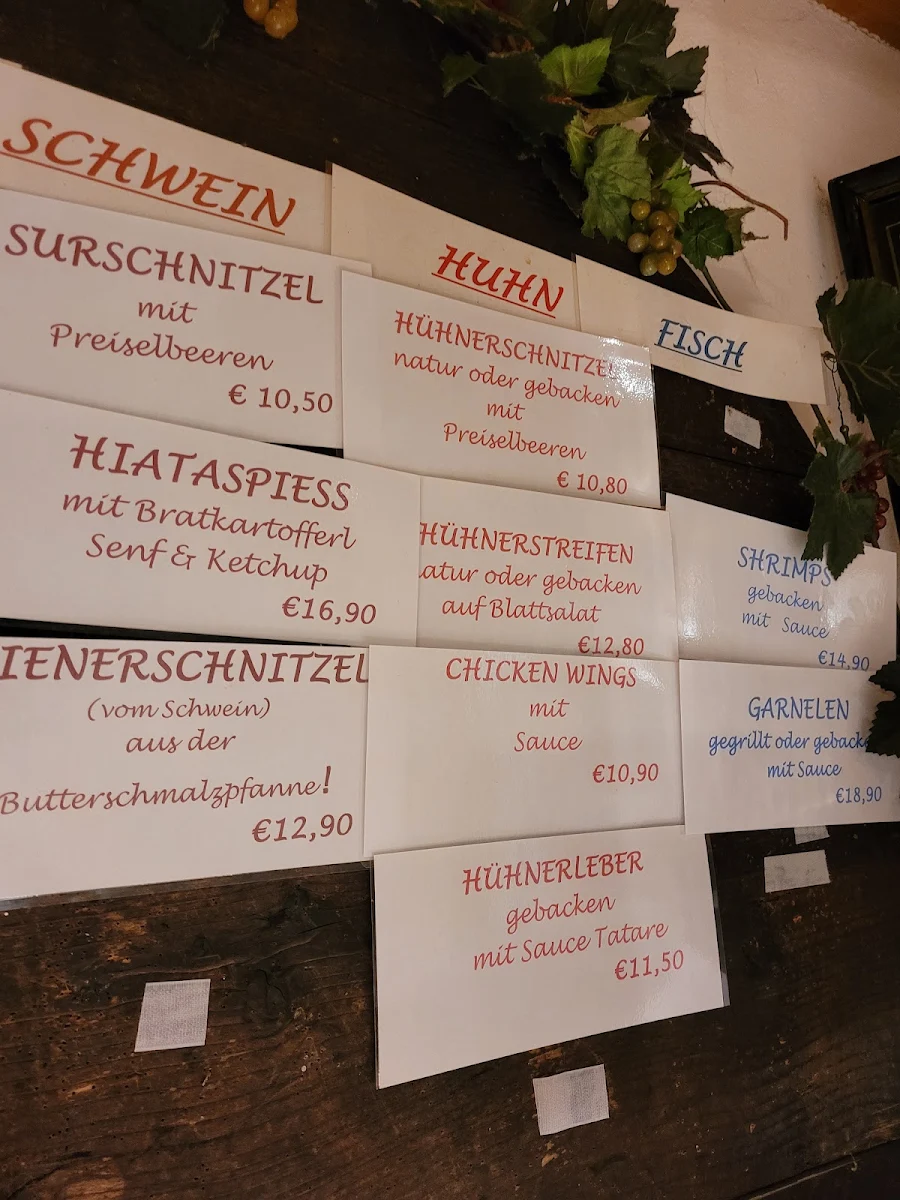 SCHWEIN
SURSCHNITZEL
mit
Preiselbeeren
€ 10,50
HIATASPIESS
mit Bratkartofferl
Senf & Ketchup
€16,90
IENERSCHNITZEL
(vom Schwein)
aus der
Butterschmalzpfanne!
€12,90
HUHN
HÜHNERSCHNITZEL
natur oder gebacken
mit
Preiselbeeren
€ 10,80
HÜHNERSTREIFEN
atur oder gebacken
auf Blattsalat
€12,80
CHICKEN WINGS
mit
Sauce
€10,90
HÜHNERLEBER
gebacken
mit Sauce Tatare
€11,50
FISCH
SHRIMPS
gebacken
mit Sauce
€14,90
GARNELEN
gegrillt oder gebacke
mit Sauce
€18,90